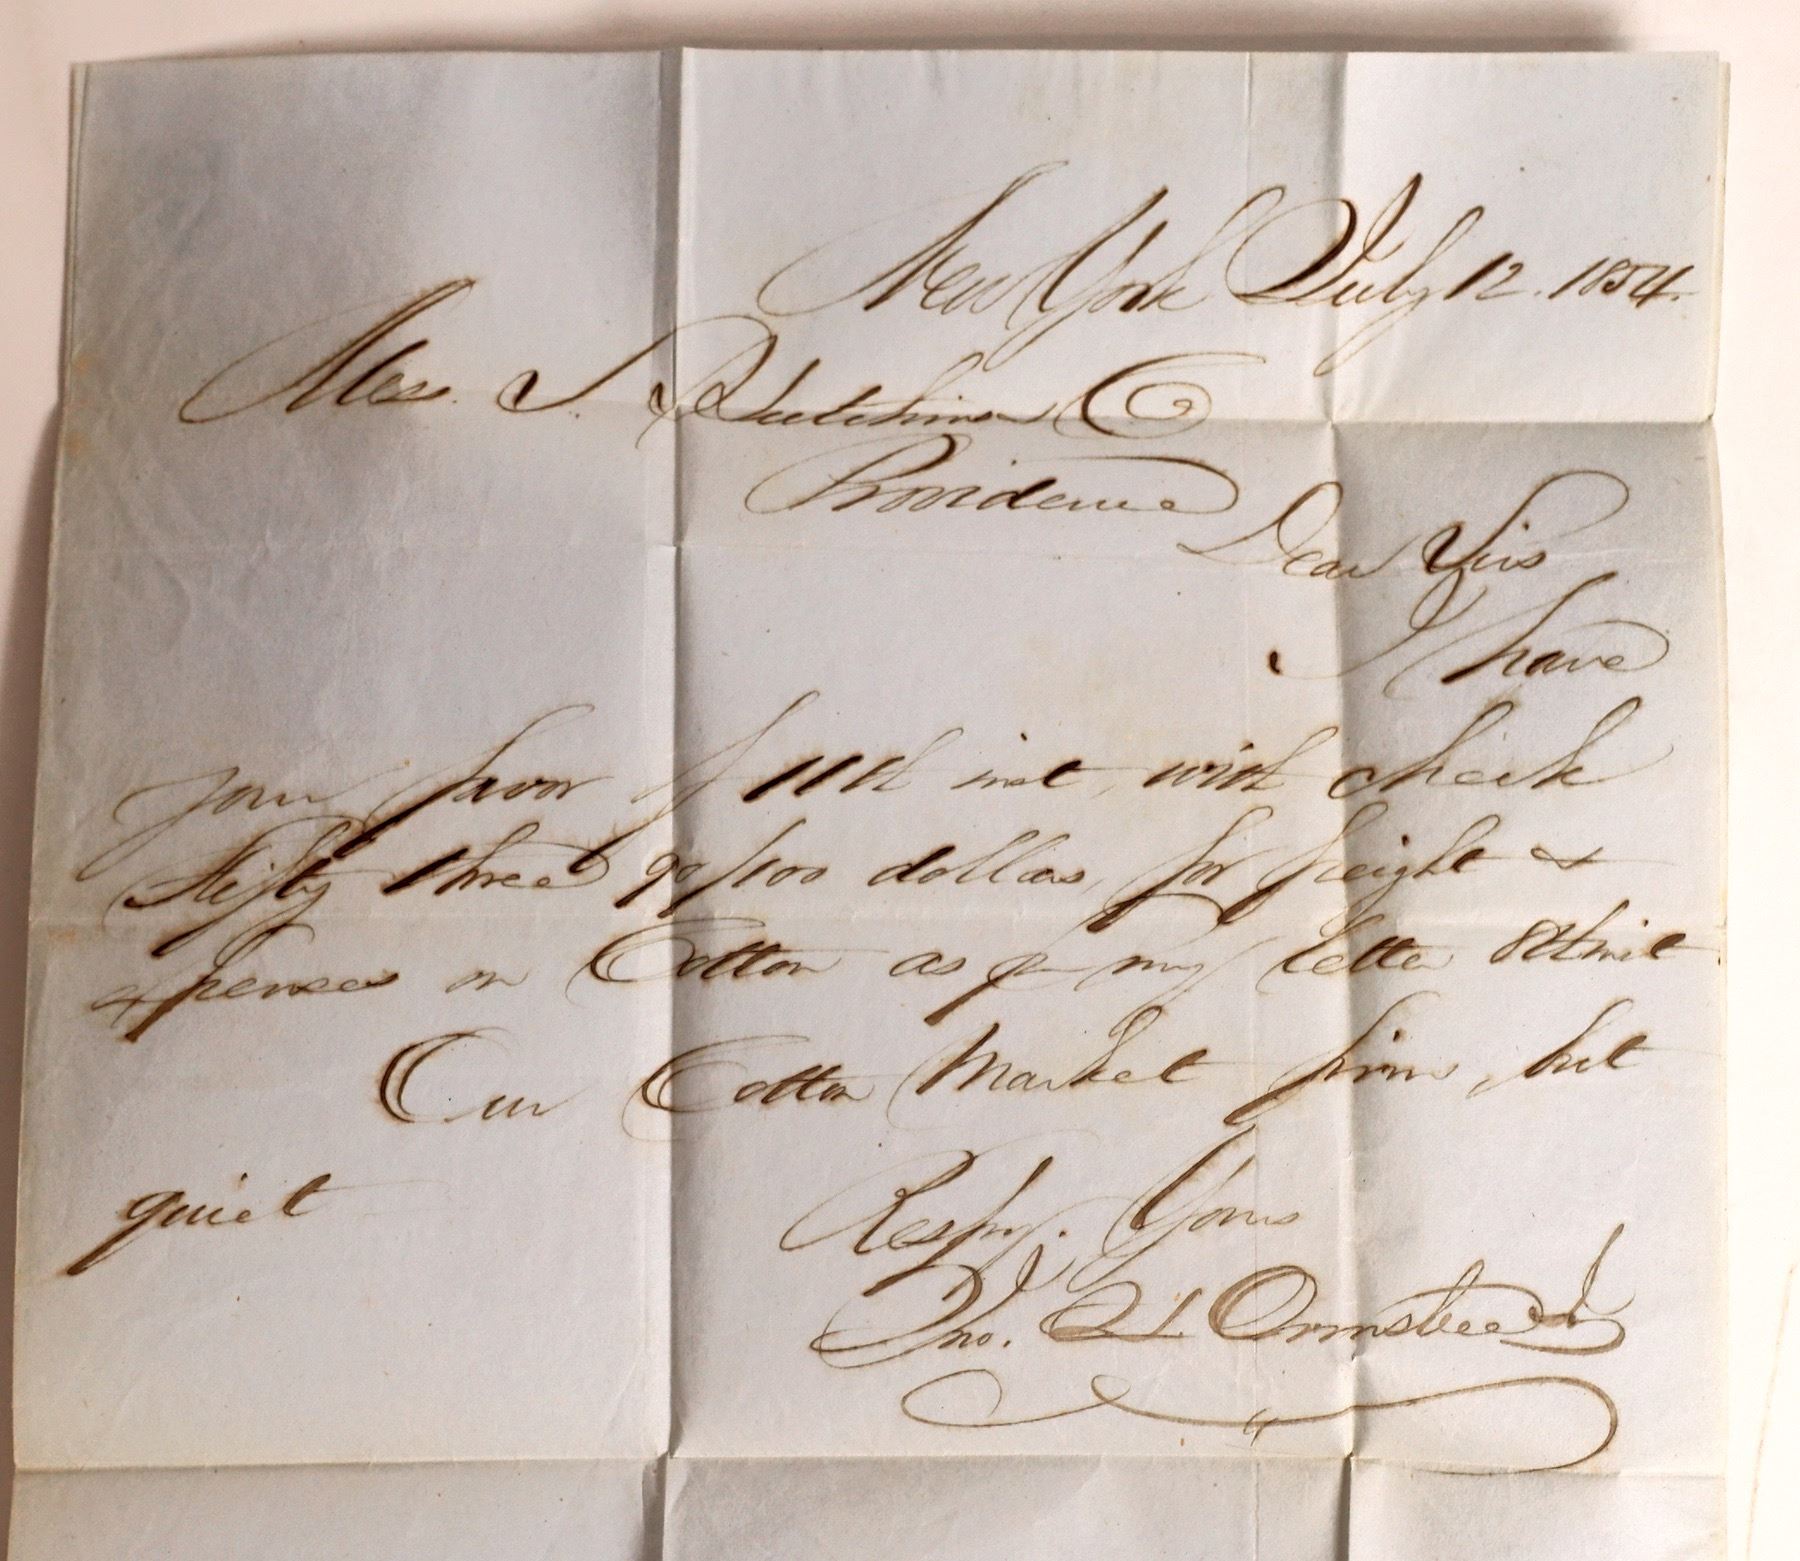 New York July 12. 1854.
Mess. S. Hutchinson Co
Providence
Dear Sirs
I have
your favor of 11th inst, with check
fifty three 99/100 dollars, for freight &
expenses on Cotton as per my letter 8th inst
Our Cotton Market firm, but
quiet
Respy. Yours
Jno. Ormsbee